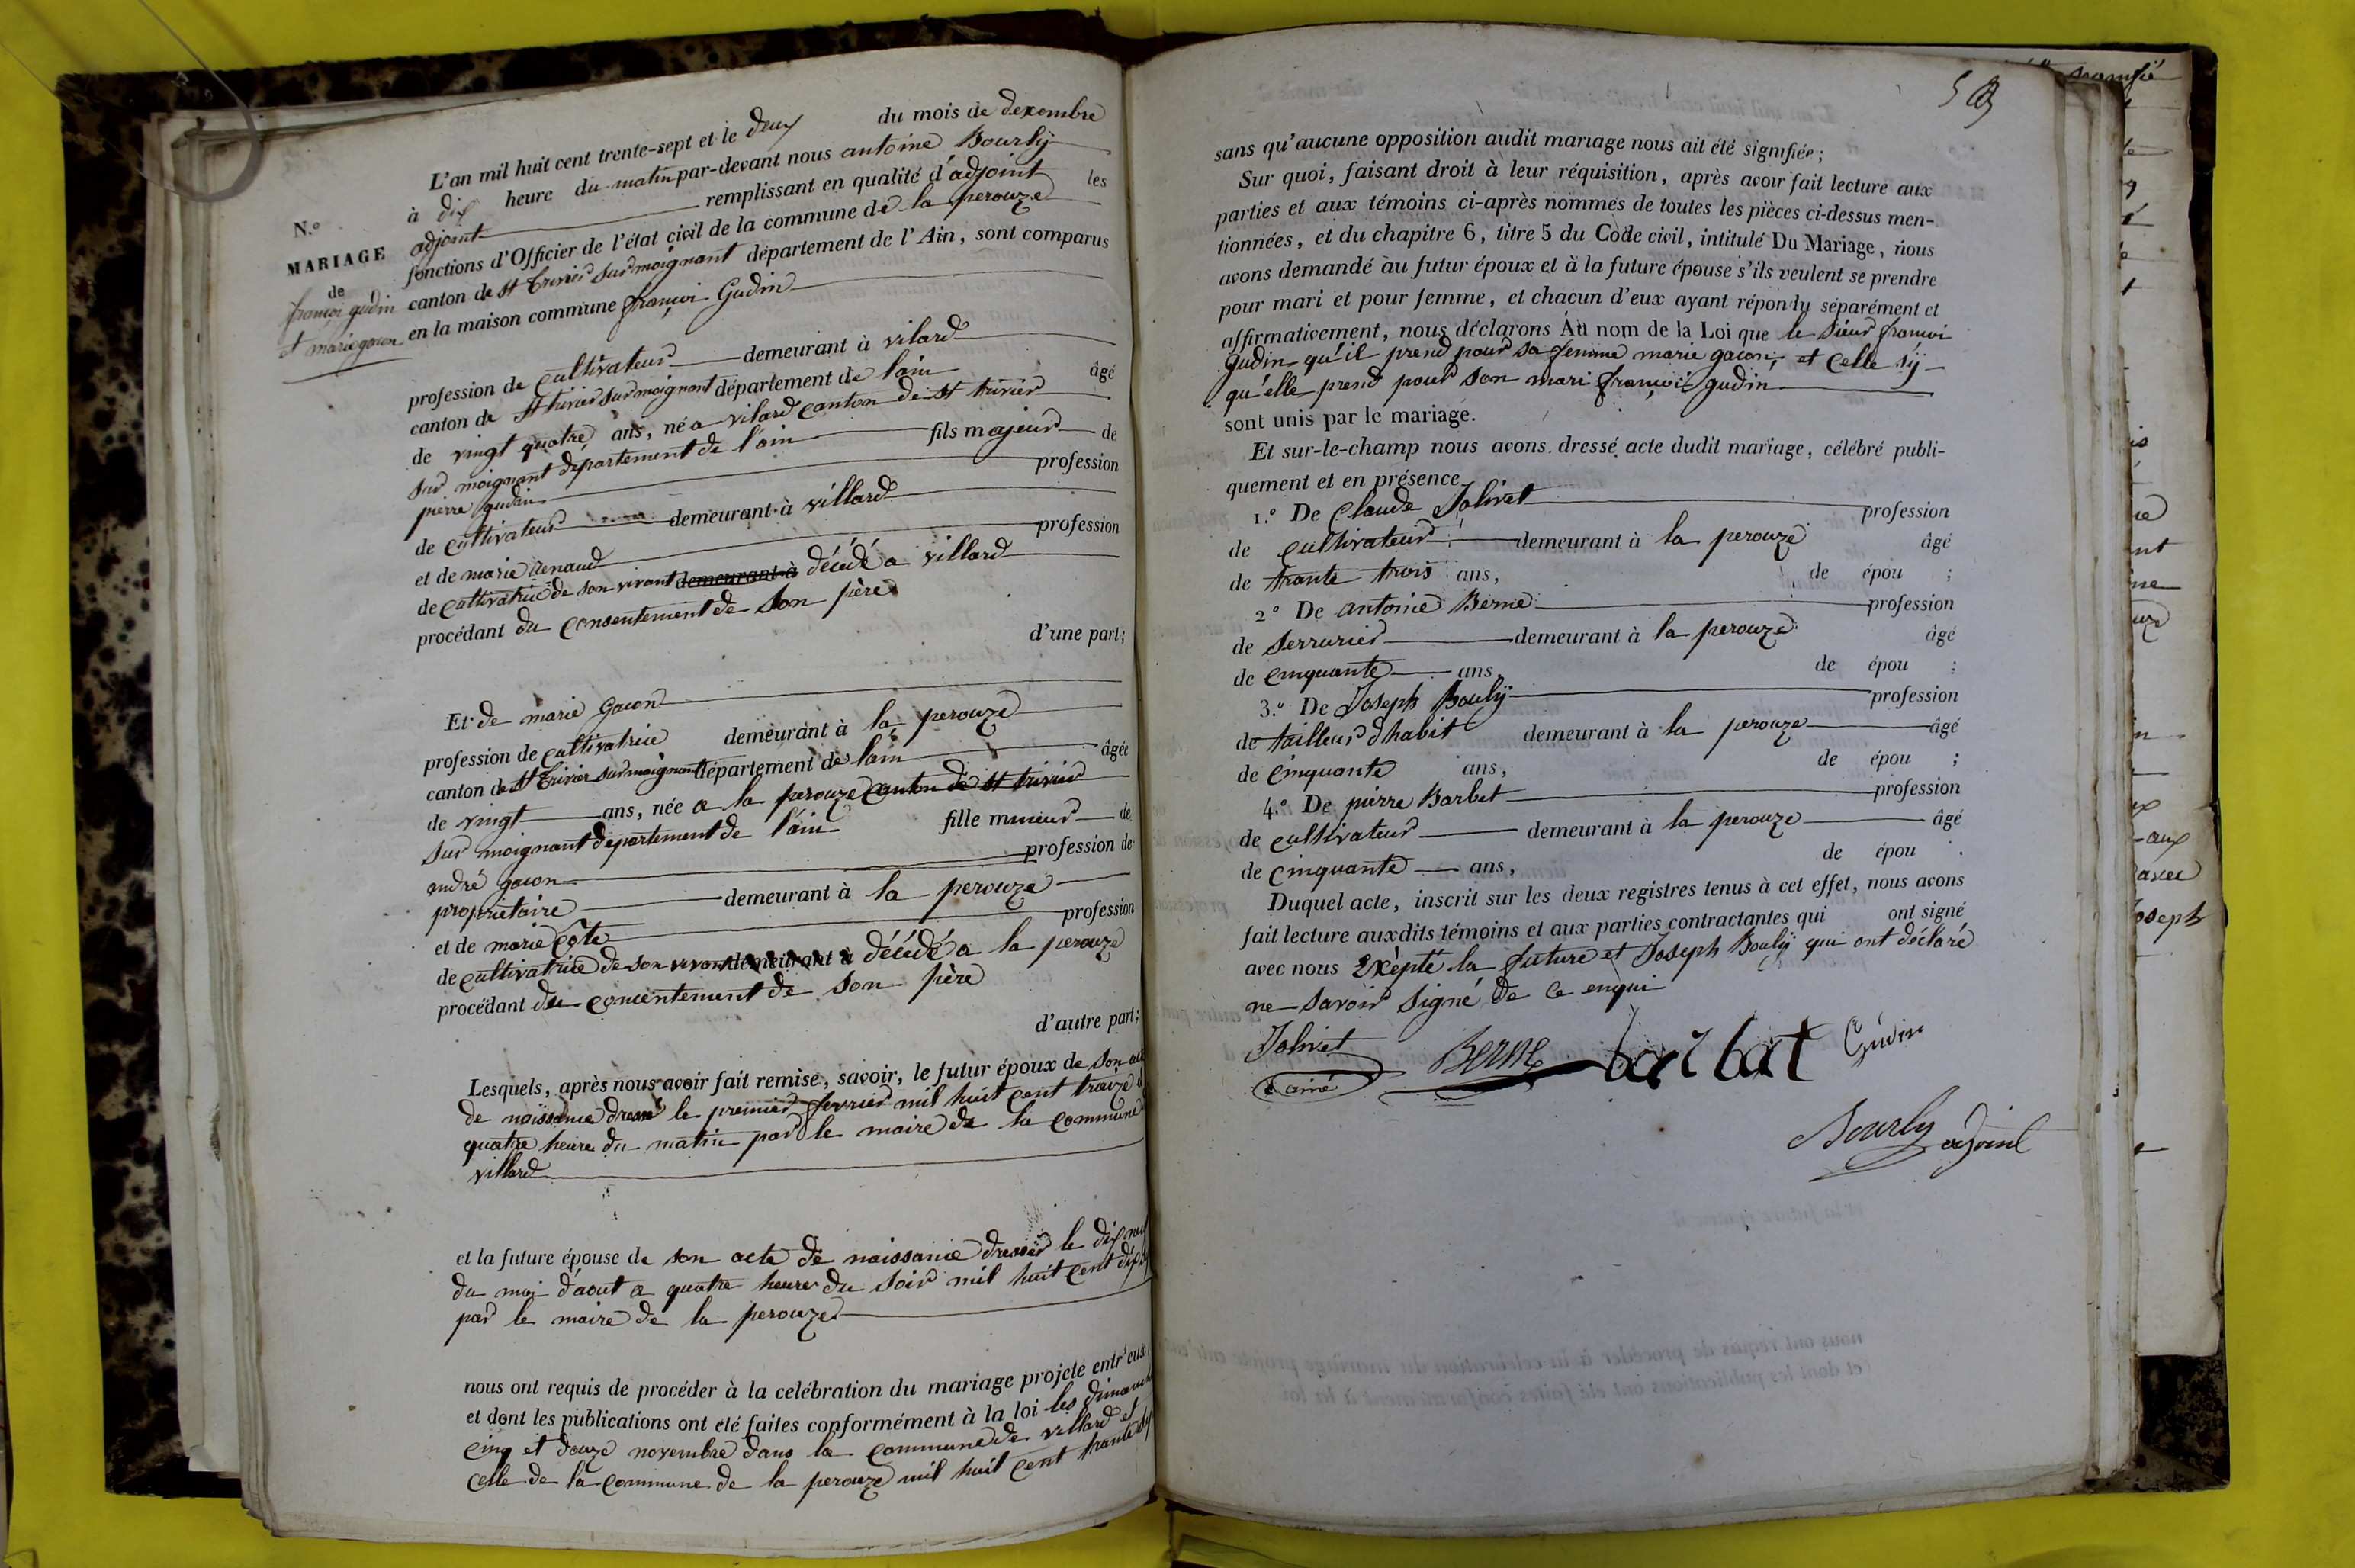 N.º
MARIAGE
de
françoi gudin
et marie gacon
L'an mil huit cent trente-sept et le deux du mois de dexembre
à dix heure du matin par-devant nous antoine Bourly
adjoint remplissant en qualité d'adjoint les
fonctions d'Officier de l'état civil de la commune de la perouze
canton de st trivier sur moignant département de l'Ain, sont comparus
en la maison commune françoi Gudin
profession de cultivateur demeurant à vilard
canton de st trivier sur moignant département de l'ain âgé
de vingt quatre ans, né a vilard canton de st trivier
sur moignant département de l'ain fils majeur de
pierre gudin profession
de cultivateur demeurant à villard
et de marie Renaud profession
de cultivatrice de son vivant demeurant à décédé a villard
procédant du consentement de son père
d'une part;
Et de marie Gacon
profession de cultivatrice demeurant à la perouze
canton de st trivier sur moignant département de l'ain âgée
de vingt ans, née a la perouze canton de st trivier
sur moignant département de l'ain fille mineur de
andré gacon profession de
propriétaire demeurant à la perouze
et de marie Cote profession
de cultivatrice de son vivant demeurant à décédé a la perouze
procédant du concentement de son père
d'autre part;
Lesquels, après nous avoir fait remise, savoir, le futur époux de son
de naissance dressé le premier fevrier mil huit cent traize
quatre heure du matin par le maire de la commune
villard
et la future épouse de son acte de naissance dresser le dix
du moi d'aout a quatre heure du soir mil huit cent dix
par le maire de la perouze
nous ont requis de procéder à la celébration du mariage projeté entr'eux
et dont les publications ont été faites conformément à la loi les dimanche
cinq et douze novembre dans la commune de villard et
celle de la commune de la perouze mil huit cent trante
sans qu'aucune opposition audit mariage nous ait été signifiée;
Sur quoi, faisant droit à leur réquisition, après avoir fait lecture aux
parties et aux témoins ci-après nommés de toutes les pièces ci-dessus men-
tionnées, et du chapitre 6, titre 5 du Code civil, intitulé Du Mariage, nous
avons demandé au futur époux et à la future épouse s'ils veulent se prendre
pour mari et pour femme, et chacun d'eux ayant répondu séparément et
affirmativement, nous déclarons Au nom de la Loi que le sieur françoi
gudin qu'il prend pour sa femme marie gacon, et celle sÿ
qu'elle prend pour son mari françoi gudin
sont unis par le mariage.
Et sur-le-champ nous avons dressé acte dudit mariage, célébré publi-
quement et en présence
1.º De Claude Jolivet profession
de cultivateur demeurant à la perouze âgé
de trante trois ans, de épou ;
2º De antoine Berne profession
de serrurier demeurant à la perouze âgé
de cinquante ans, de épou ;
3.º De Joseph Boulÿ profession
de tailleur d'habit demeurant à la perouze âgé
de cinquante ans, de épou ;
4.º De pierre Barbet profession
de cultivateur demeurant à la perouze âgé
de cinquante ans, de épou .
Duquel acte, inscrit sur les deux registres tenus à cet effet, nous avons
fait lecture auxdits témoins et aux parties contractantes qui ont signé
avec nous Exèpté la future et Joseph Boulÿ qui ont déclaré
ne savoir signé de ce enqui
Jolivet Berne barbat Gudin
ainé
Bourly adjoint